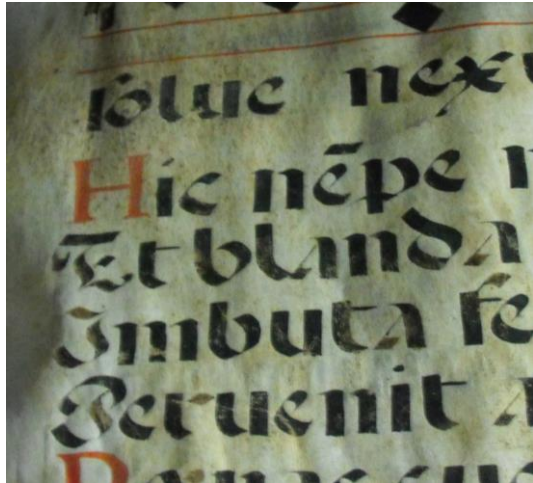 ſolue nexu
Hic nēpe
Et blanda
Imbuta fe
Peruenit